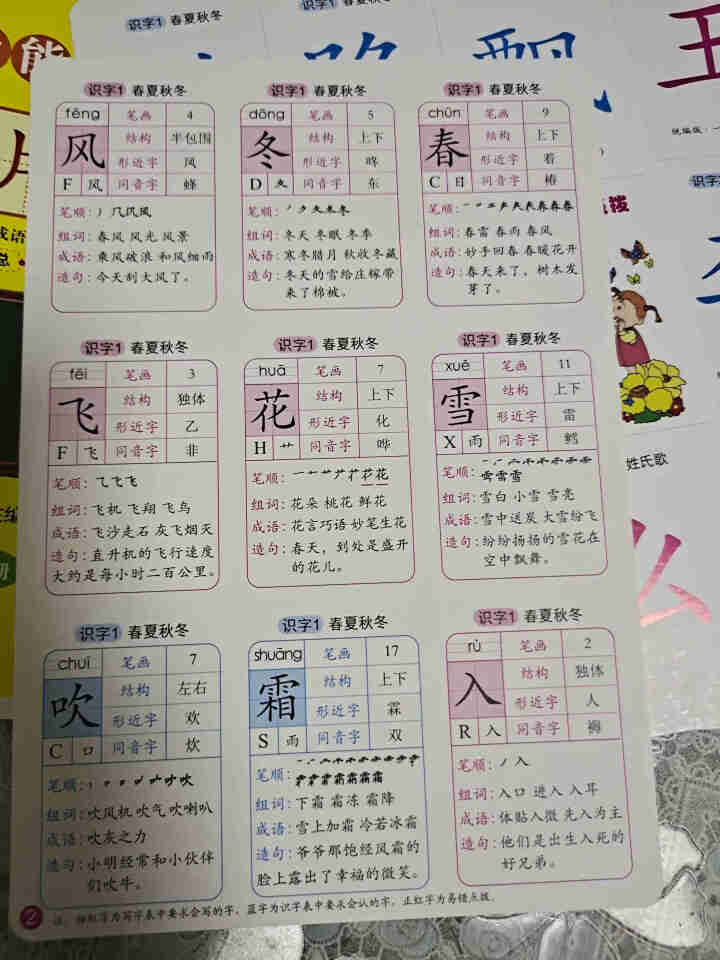 识字1 春夏秋冬
识字1 春夏秋冬
能
识字1 春夏秋冬
fēng 笔画 4
风 结构 半包围
形近字 凤
F 风 同音字 蜂
笔顺:
组词:春风 风光 风景
成语:乘风破浪 和风细雨
造句:今天刮大风了。
识字1 春夏秋冬
dōng 笔画 5
冬 结构 上下
形近字 咚
D 夂 同音字 东
笔顺:
组词:冬天 冬眠 冬季
成语:寒冬腊月 秋收冬藏
造句:冬天的雪给庄稼带
来了棉被。
识字1 春夏秋冬
chūn 笔画 9
春 结构 上下
形近字 着
C 日 同音字 椿
笔顺:
组词:春雷 春雨 春风
成语:妙手回春 春暖花开
造句:春天来了,树木发
芽了。
识字1 春夏秋冬
fēi 笔画 3
飞 结构 独体
形近字 乙
F 飞 同音字 非
笔顺:
组词:飞机 飞翔 飞鸟
成语:飞沙走石 灰飞烟灭
造句:直升机的飞行速度
大约是每小时二百公里。
识字1 春夏秋冬
huā 笔画 7
花 结构 上下
形近字 化
H 艹 同音字 哗
笔顺:
组词:花朵 桃花 鲜花
成语:花言巧语 妙笔生花
造句:春天,到处是盛开
的花儿。
识字1 春夏秋冬
xuě 笔画 11
雪 结构 上下
形近字 雷
X 雨 同音字 鳕
笔顺:
组词:雪白 小雪 雪亮
成语:雪中送炭 大雪纷飞
造句:纷纷扬扬的雪花在
空中飘舞。
识字1 春夏秋冬
chuī 笔画 7
吹 结构 左右
形近字 欢
C 口 同音字 炊
笔顺:
组词:吹风机 吹气 吹喇叭
成语:吹灰之力
造句:小明经常和小伙伴
们吹牛。
识字1 春夏秋冬
shuāng 笔画 17
霜 结构 上下
形近字 霖
S 雨 同音字 双
笔顺:
组词:下霜 霜冻 霜降
成语:雪上加霜 冷若冰霜
造句:爷爷那饱经风霜的
脸上露出了幸福的微笑。
识字1 春夏秋冬
rù 笔画 2
入 结构 独体
形近字 人
R 入 同音字 褥
笔顺:
组词:入口 进入 入耳
成语:体贴入微 先入为主
造句:他们是出生入死的
好兄弟。
2 注:粉红字为写字表中要求会写的字,蓝字为识字表中要求会认的字,正红字为易错点拨。
姓氏歌